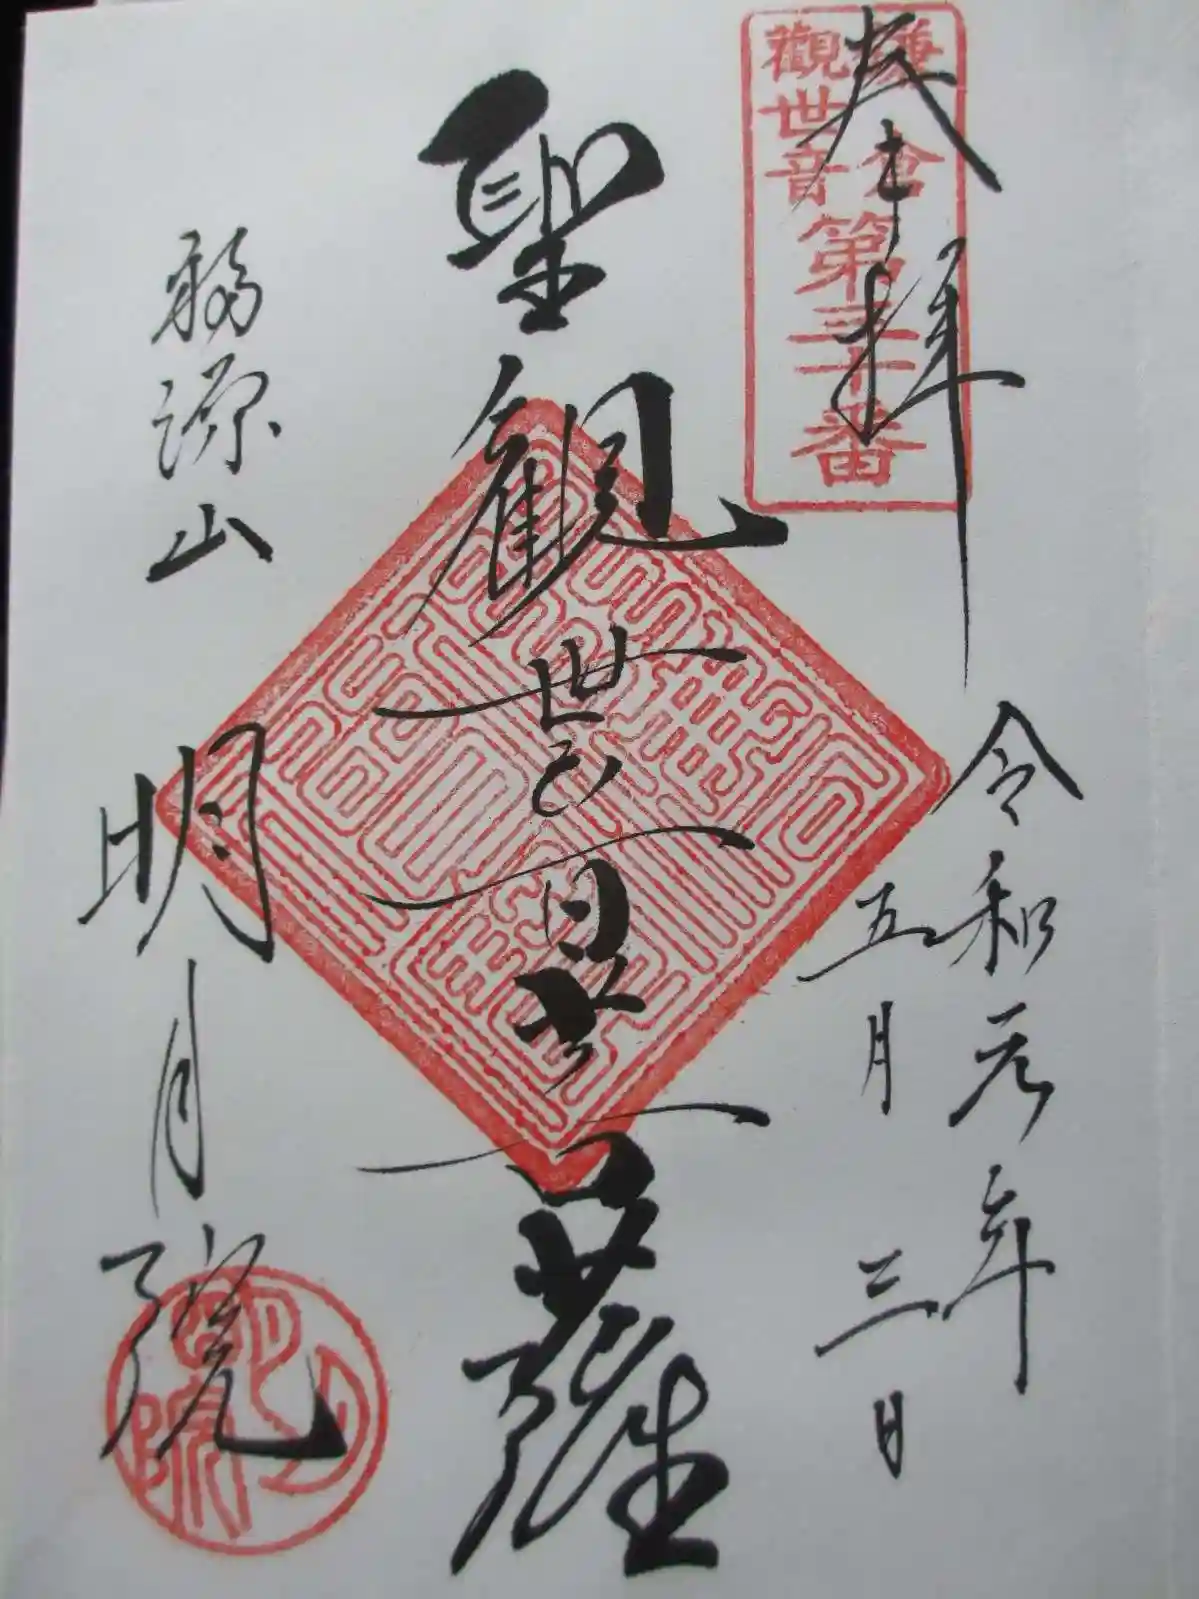 奉拝
鎌倉
觀世音
第三十番
令和元年
五月三日
聖観世音菩薩
福源山
明月院